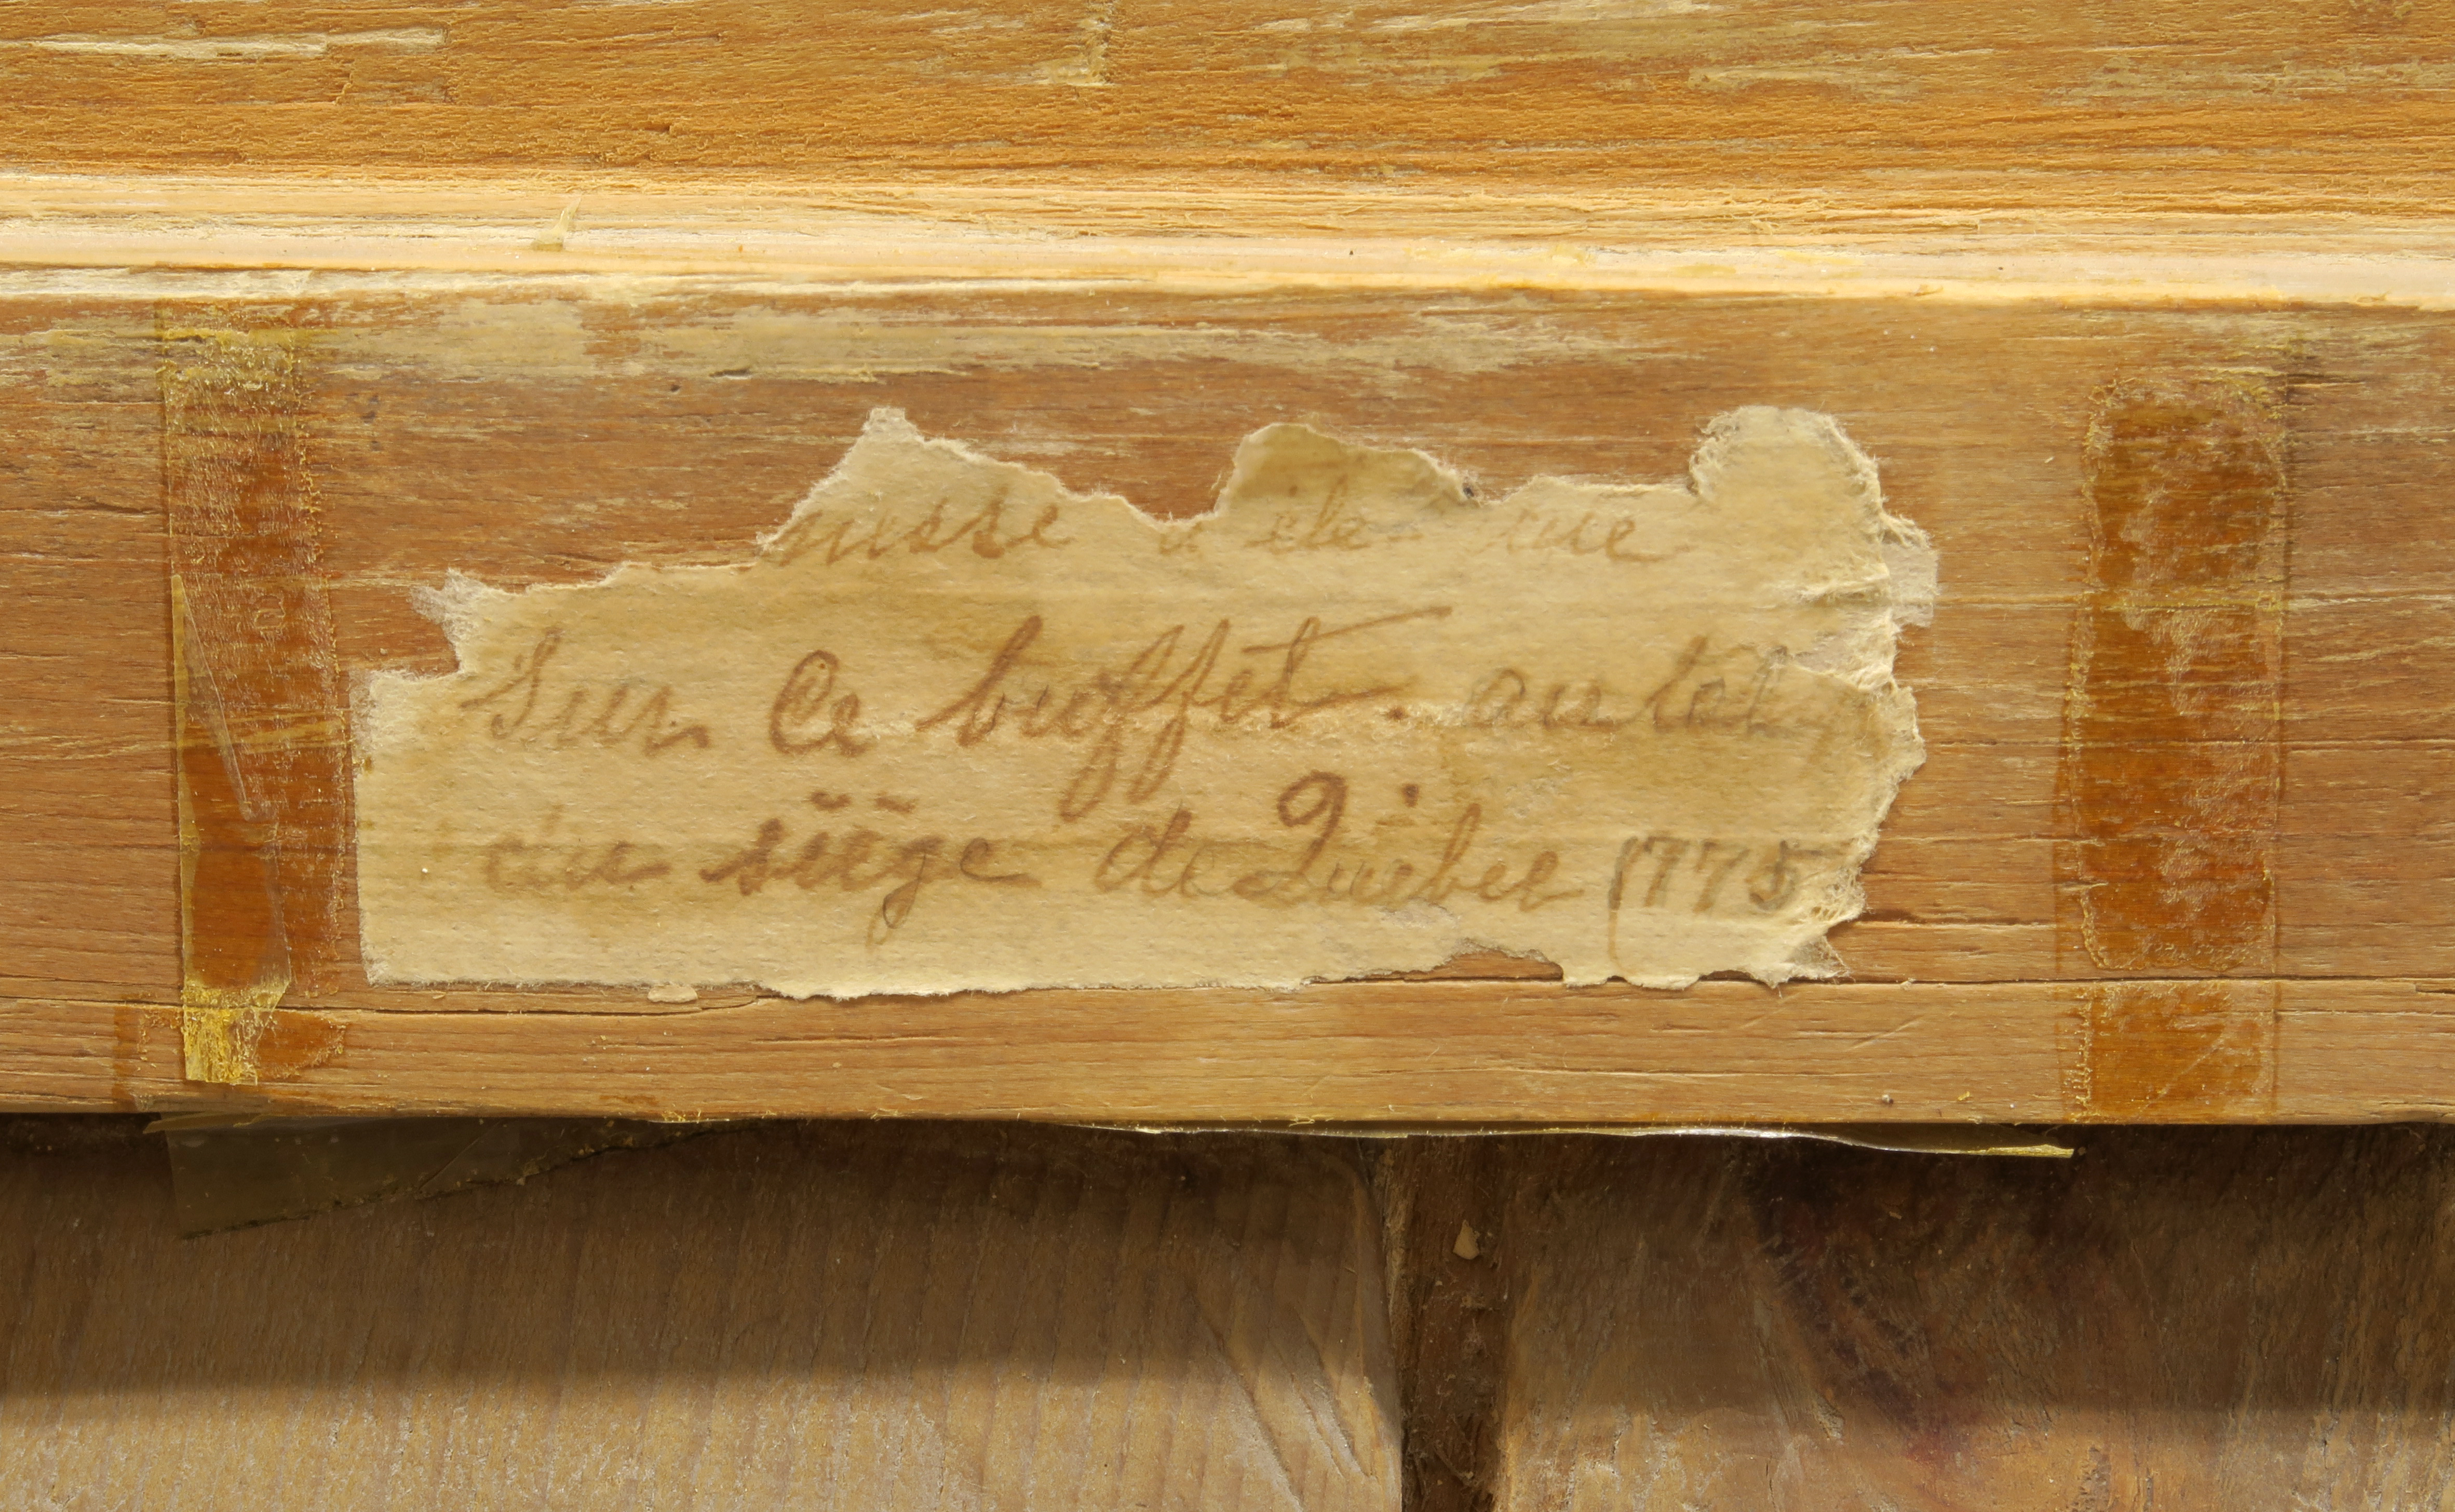 messe a été
Sur ce buffet. autel
au siège de Québec 1775